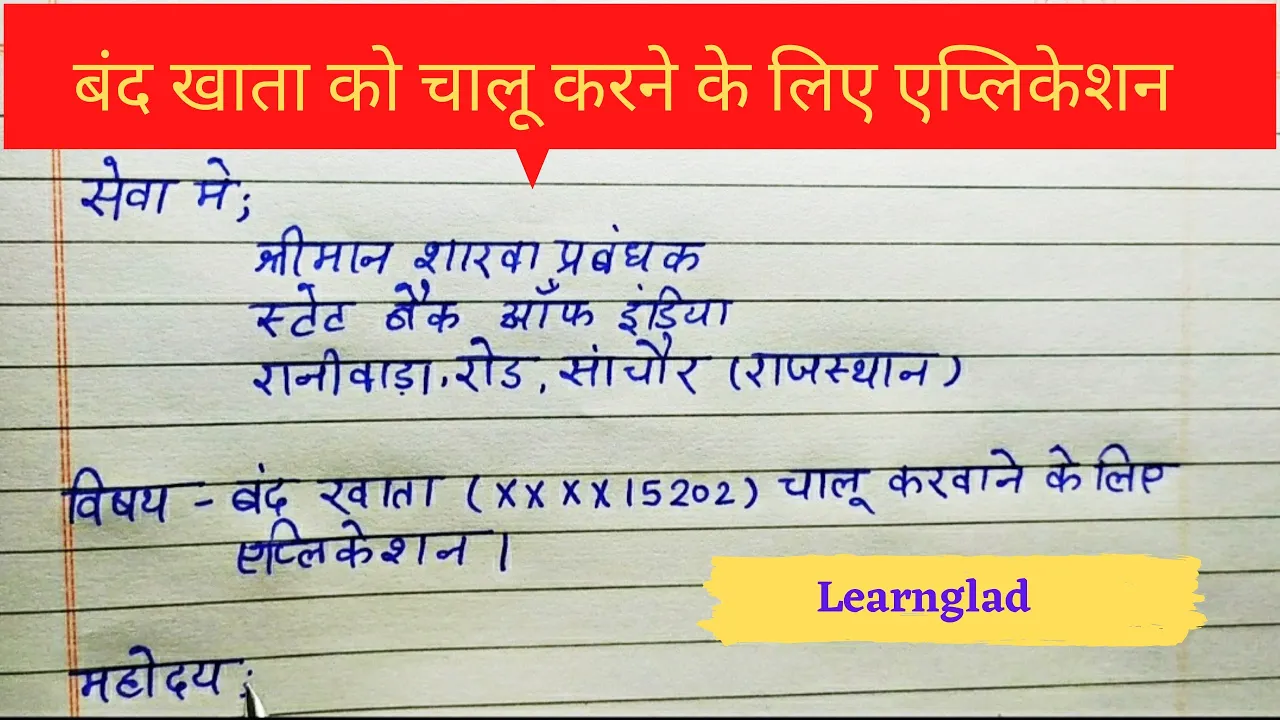 बंद खाता को चालू करने के लिए एप्लिकेशन
सेवा मे;
श्रीमान शाखा प्रबंधक
स्टेट बैंक ऑफ इंडिया
रानीवाड़ा, रोड, सांचौर (राजस्थान)
विषय - बंद खाता (XXXX15202) चालू करवाने के लिए
एप्लिकेशन।
Learnglad
महोदय ;